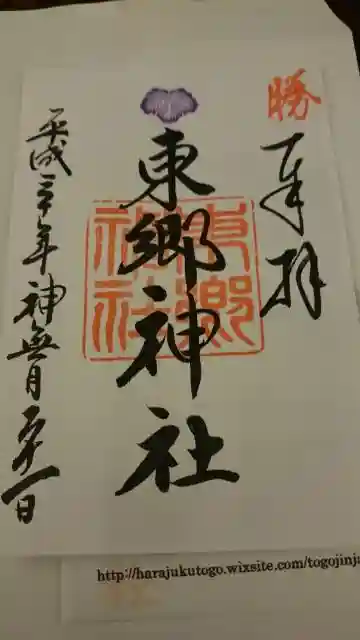 勝
奉拝
東郷神社
東郷
神社
平成三十年神無月二十一日
http://harajukutogo.wixsite.com/togojinja